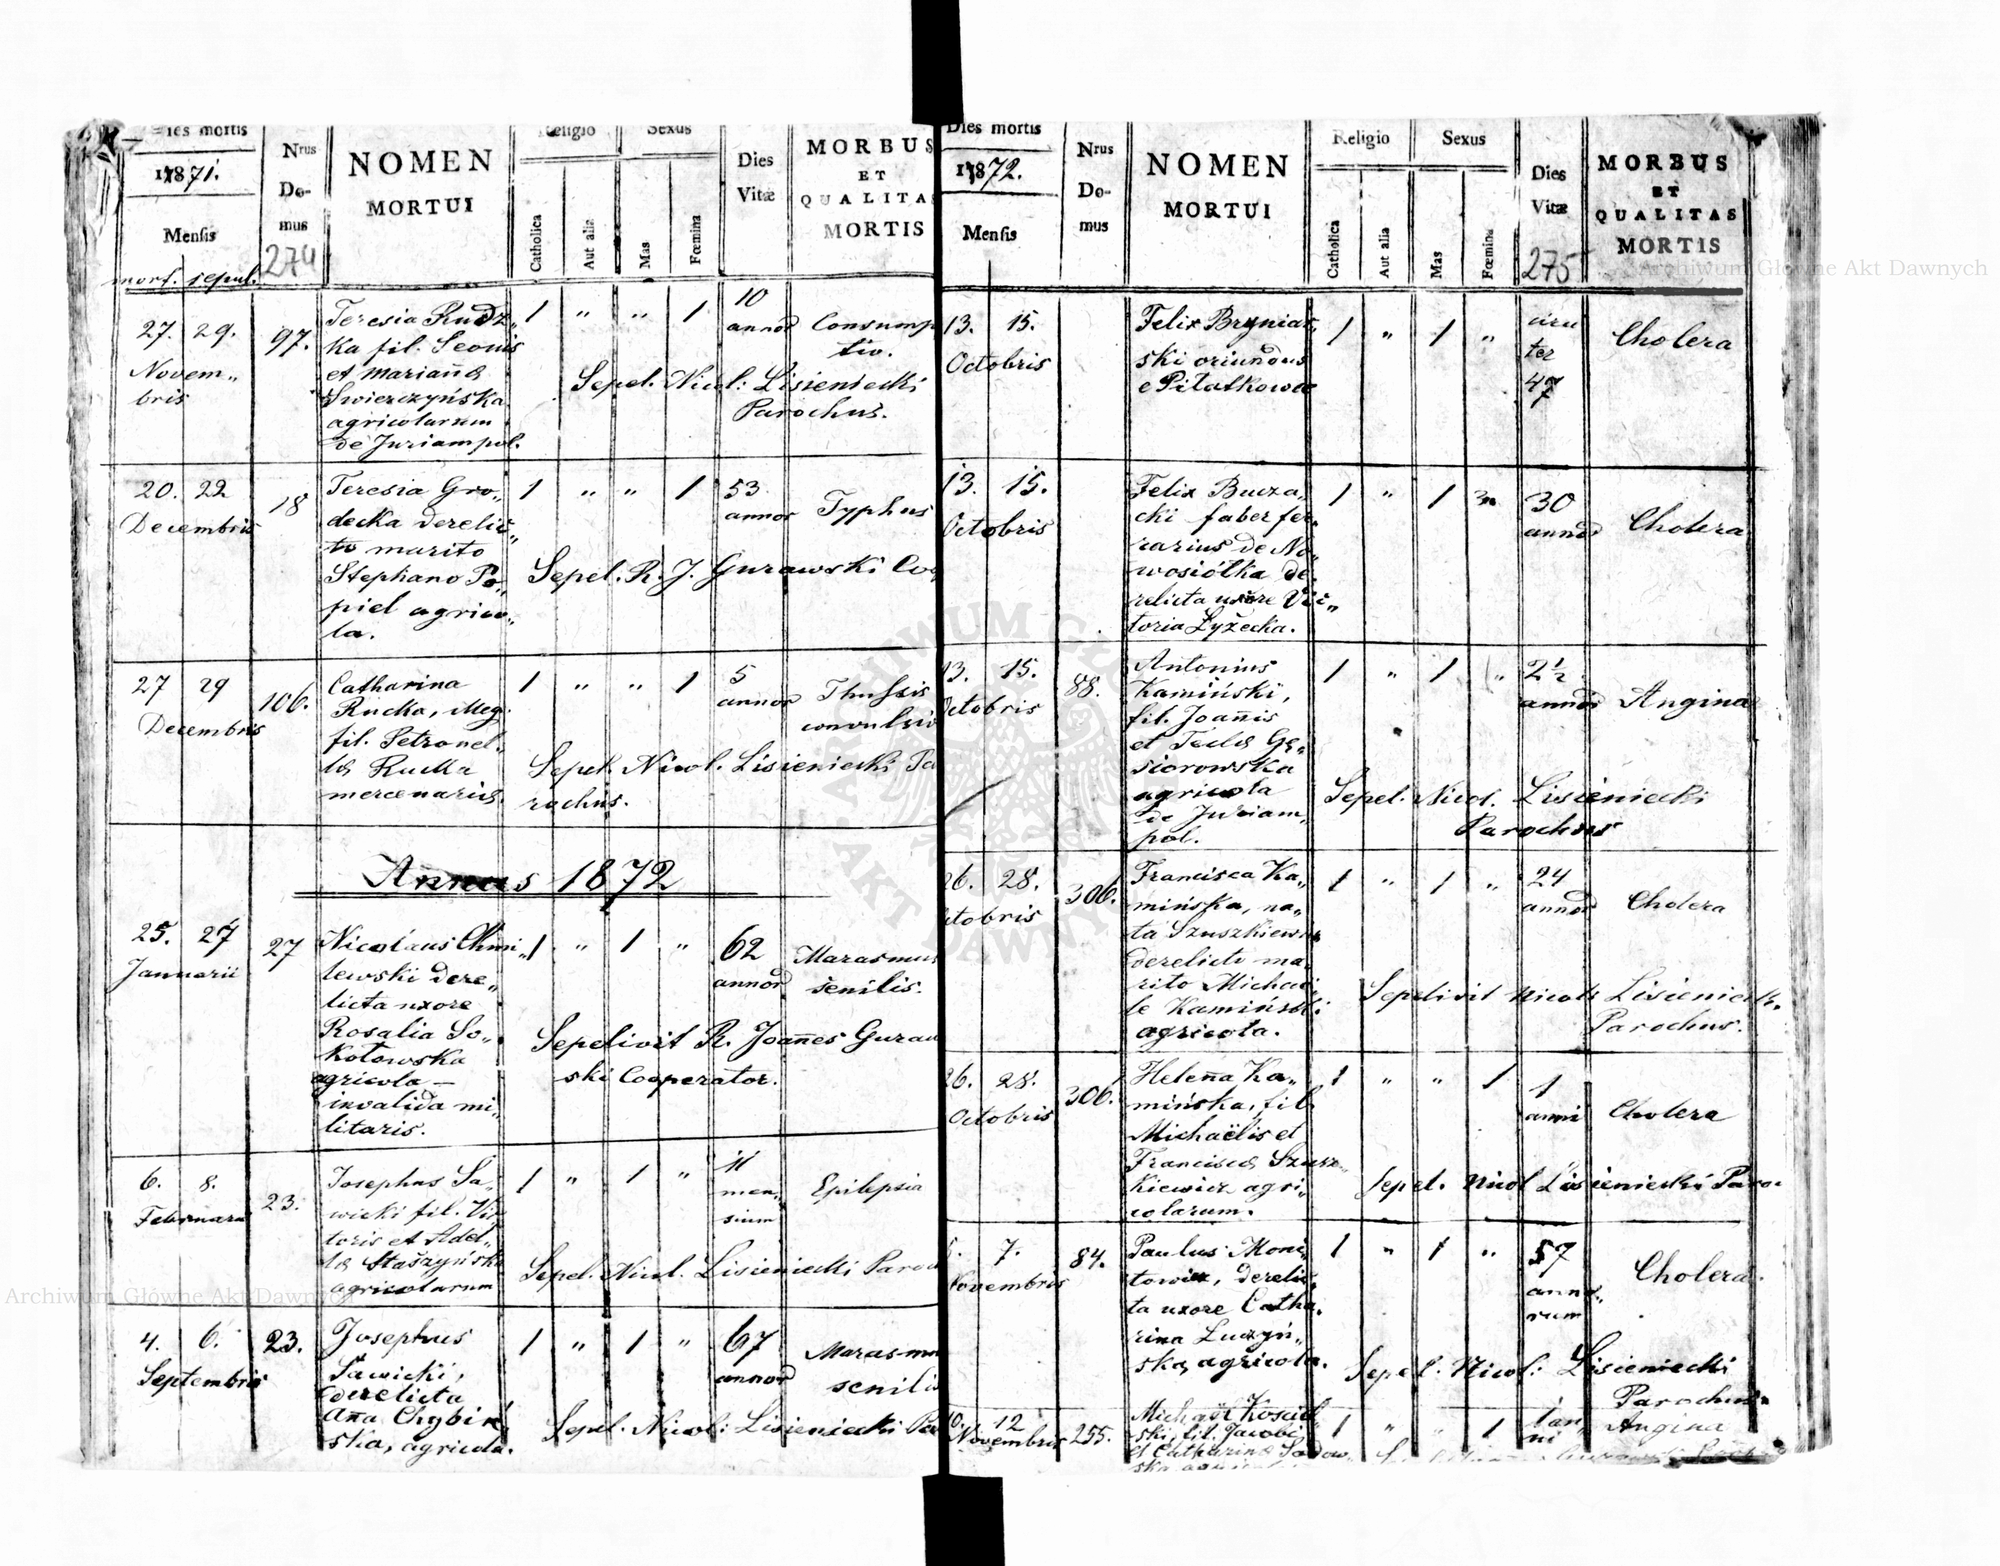 Dies mortis
1871.
Mensis
mort. sepul.
Nrus
Do-
mus
274
NOMEN
MORTUI
Religio
Catholica
Aut alia
Sexus
Mas
Fœmina
Dies
Vitæ
MORBUS
ET
QUALITAS
MORTIS
27. 29.
Novem„
bris
97.
Teresia Rudz„
ka fil. Leonis
et Mariañæ
Swierczyńska
agricolarum
de Juriampol.
1 „ „ 1
10
annor
Consump
tio.
Sepel. Nicol: Lisieniecki
Parochus.
20. 22
Decembris
18
Teresia Gro„
decka derelic„
to marito
Stephano Po„
piel agrico„
la.
1 „ „ 1
53
annor
Typhus
Sepel. R. J. Gurawski Coo
27 29
Decembris
106.
Catharina
Rucka, illeg.
fil. Petronel„
læ Rucka
mercenariæ.
1 „ „ 1
5
annor
Thussis
convulsiv
Sepel. Nicol. Lisieniecki Pa
rochus.
Annus 1872
25. 27
Januarii
27
Nicolaus Chmi„
lewski dere„
licta uxore
Rosalia So„
kołowska
agricola —
invalida mi„
litaris.
1 „ 1 „
62
annor
Marasmus
senilis.
Sepelivit R. Joañes Guraw
ski Cooperator.
6. 8.
Februarii
23.
Josephus Sa„
wicki fil. Vic
toris et Adel„
læ Staszyńska
agricolarum
1 „ 1 „
11
men„
sium
Epilepsia
Sepel. Nicol. Lisieniecki Paroc
4. 6.
Septembris
23.
Josephus
Sawicki,
derelicta
Aña Chybiń
ska, agricola.
1 „ 1 „
67
annor
Marasmu
senilis
Sepel. Nicol: Lisieniecki Par
Dies mortis
1872.
Mensis
Nrus
Do-
mus
NOMEN
MORTUI
Religio
Catholica
Aut alia
Sexus
Mas
Fœmina
Dies
Vitæ
275
MORBUS
ET
QUALITAS
MORTIS
13. 15.
Octobris
Felix Bryniar„
ski oriundus
e Piłatkowce
1 „ 1 „
circi
ter
47
Cholera
13. 15.
Octobris
Felix Bucza„
cki faber fer„
rarius de No„
wosiółka de„
relicta uxore Vic„
toria Łyżecka.
1 „ 1
30
annor
Cholera
13. 15.
Octobris
88.
Antonius
Kamiński,
fil. Joañis
et Teclæ Gę„
siorowska
agricola
de Juriam„
pol.
1 „ 1 „
2½
annor
Angina
Sepel. Nicol. Lisieniecki
Parochus
26. 28.
ctobris
306.
Francisca Ka„
mińska, na„
ta Szuszkiewicz
derelicto ma„
rito Michae
le Kamiński
agricola.
1 „ 1 „
24
annor
Cholera
Sepelivit Nicol: Lisieniecki
Parochus.
26. 28.
Octobris
306.
Heleña Ka„
mińska, fil.
Michaëlis et
Franciscæ Szusz„
kiewicz agri„
colarum.
1 „ „ 1
1
anni
Cholera
Sepel. Nicol Lisieniecki Paro„
5. 7.
Novembris
84.
Paulus Moni„
towicz, derelic„
ta uxore Catha„
rina Luczyń„
ska, agricola.
1 „ 1 „
57
anno„
rum
Cholera.
Sepel. Nicol: Lisieniecki
Parochus
10. 12
Novembris
255.
ski, fil. Jacobi
et Catharinæ Sadow„
1 „ „ 1
1 an
ni
Angina
Archiwum Główne Akt Dawnych
Archiwum Główne Akt Dawnych
ARCHIWUM GŁÓWNE AKT DAWNYCH